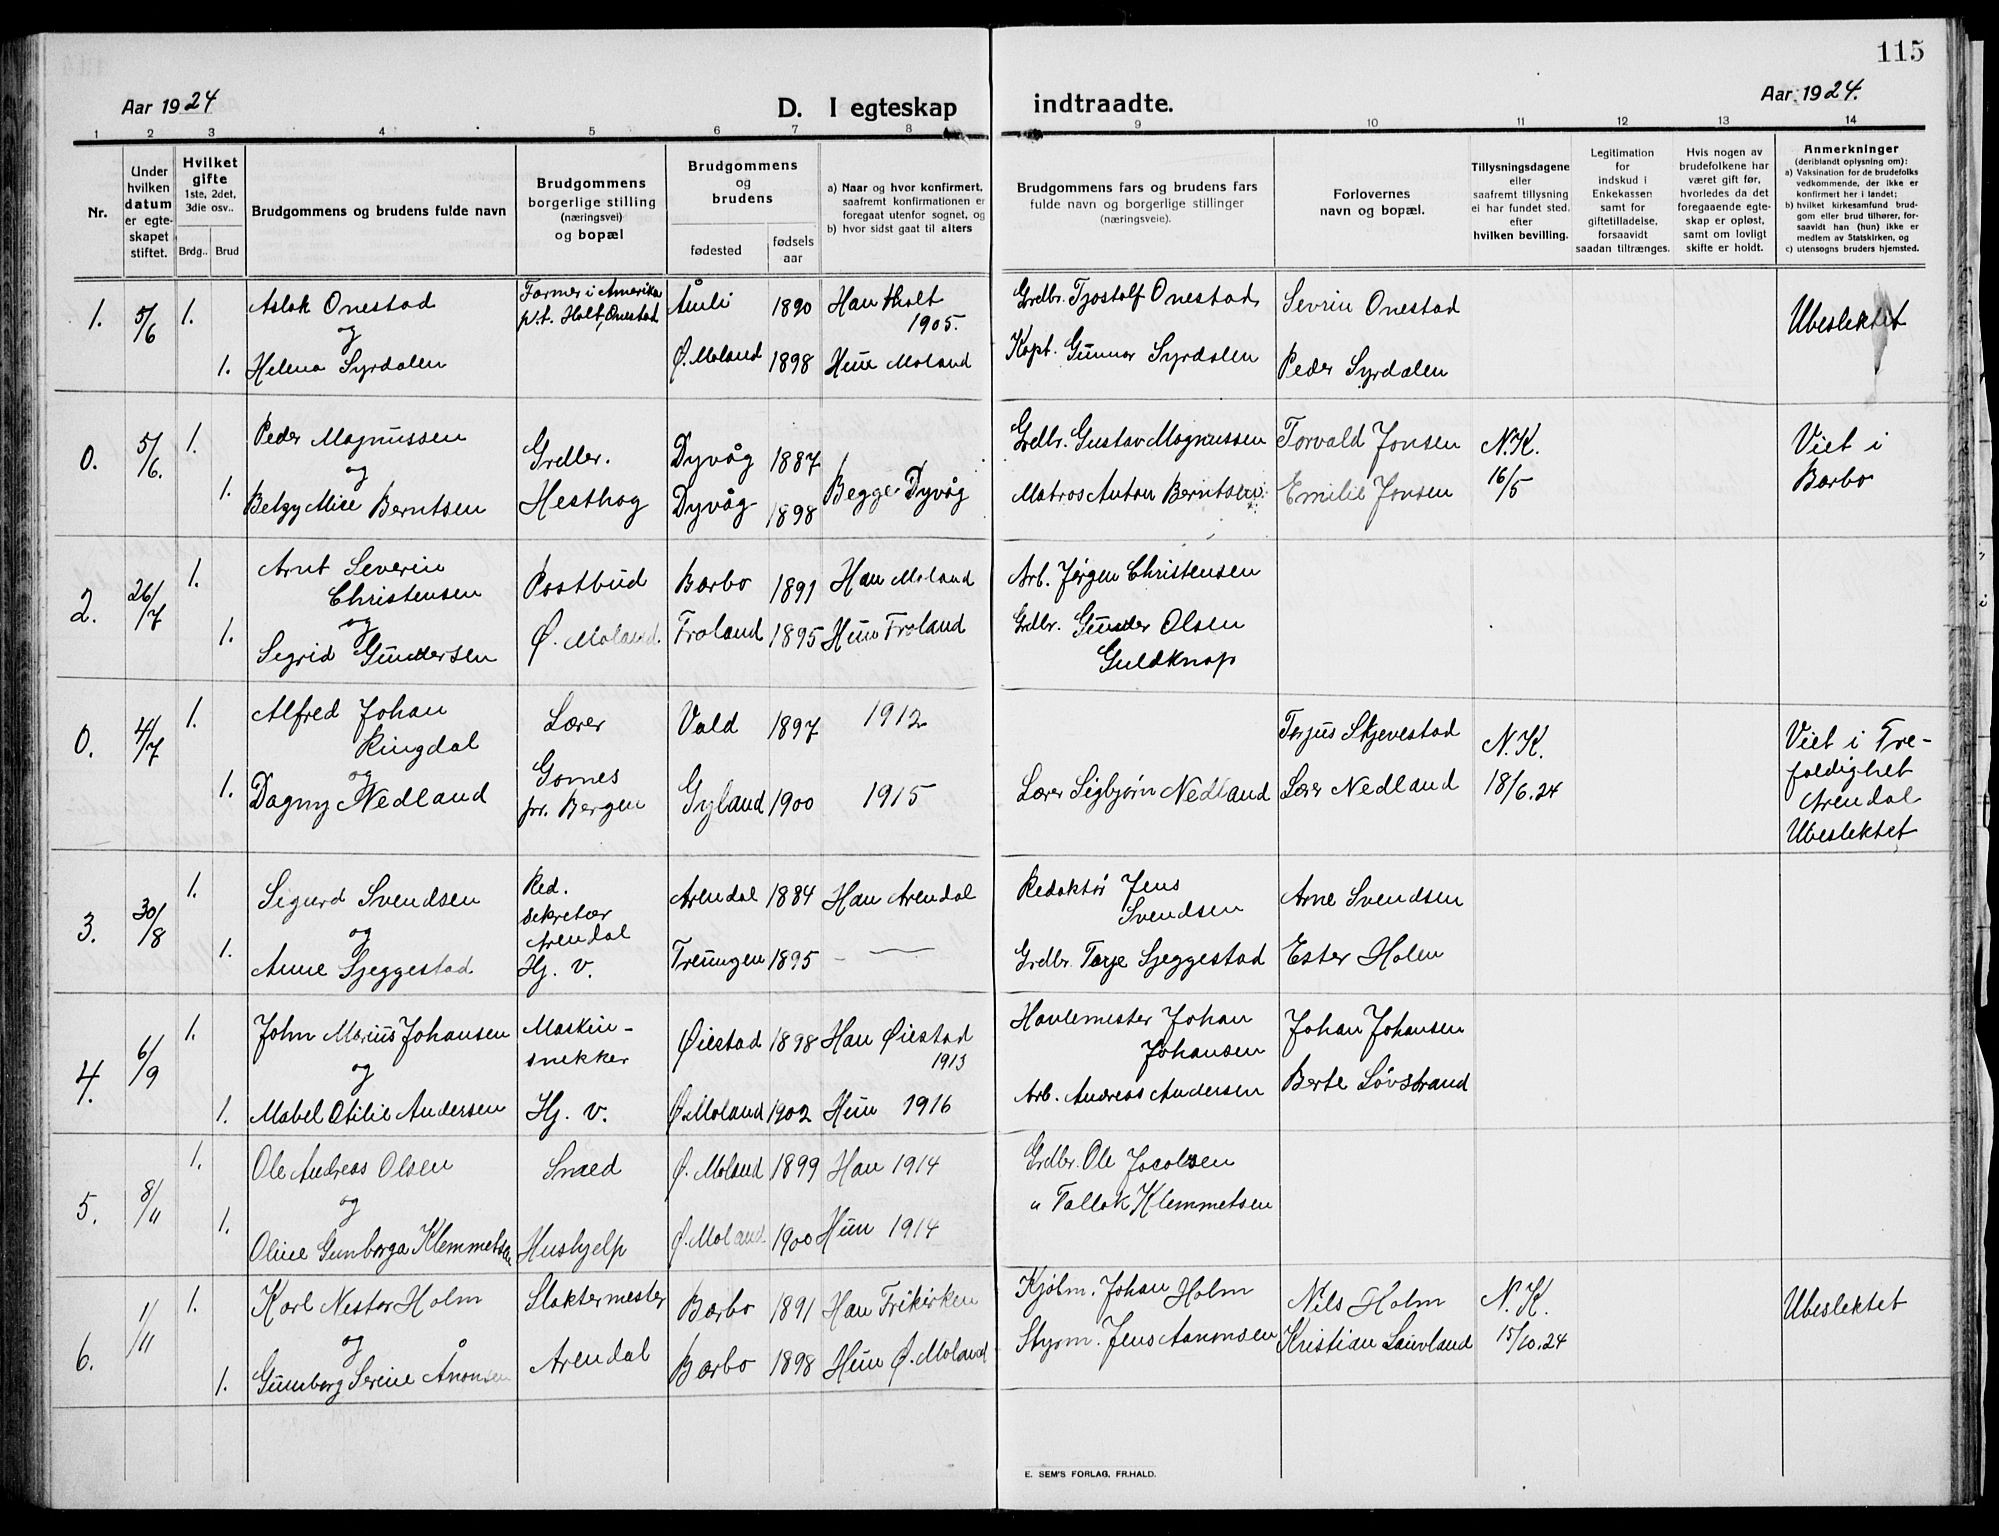 115
Aar 1924
D. I egteskap indtraadte.
Aar 1924.
1 2 3 4 5 6 7 8 9 10 11 12 13 14
Nr.
Under
hvilken
datum
er egte-
skapet
stiftet.
Hvilket
gifte
1ste, 2det,
3die osv..
Brdg..
Brud
Brudgommens og brudens fulde navn
Brudgommens
borgerlige stilling
(næringsvei)
og bopæl
Brudgommens
og
brudens
fødested
fødsels
aar
a) Naar og hvor konfirmert,
saafremt konfirmationen er
foregaat utenfor sognet, og
b) hvor sidst gaat til alters
Brudgommens fars og brudens fars
fulde navn og borgerlige stillinger
(næringsveie).
Forlovernes
navn og bopæl.
Tillysningsdagene
eller
saafremt tillysning
ei har fundet sted,
efter
hvilken bevilling.
Legitimation
for
indskud i
Enkekassen
samt for
giftetilladelse,
forsaavidt
saadan tiltrænges.
Hvis nogen av
brudefolkene har
været gift før,
hvorledes da det
foregaaende egte-
skap er opløst,
samt om lovligt
skifte er holdt.
Anmerkninger
(deriblandt oplysning om):
a) Vaksination for de brudefolks
vedkommende, der ikke er
konfirmert her i landet;
b) hvilket kirkesamfund brud-
gom eller brud tilhører, for-
saavidt han (hun) ikke er
medlem av Statskirken, og
c) utensogns bruders hjemsted.
1. 5/6 1. Aslak Onestad Farmer i Amerika Åmli 1890 Han Holt Grdbr. Tjostolf Onestad Sevrin Onestad Ubeslektet
og p.t. Holt, Onestad 1905.
1. Helena Syrdalen Ø. Moland 1898 Hun Moland Kapt. Gunnar Syrdalen Peder Syrdalen
0. 5/6. 1. Peder Magnussen Gretler. Dyvåg 1887 Grdbr. Gustav Magnussen Torvald Jonsen N.K. Viet i
og Begge Dyvåg 16/5 Barbo
1. Betzy Mise Berntsen Hesthag Dyvåg 1898 Matros Anton Berntsen Emilie Jonsen
2. 26/7 1. Arnt Severin Postbud Barbo 1891 Han Moland Arb. Jørgen Christensen
Christensen
og
1. Sigrid Gundersen Ø. Moland. Froland 1895 Hun Froland Grdbr. Gunder Olsen
Guldknap
0. 4/7 1. Alfred Johan Lærer Vald 1897 1912 Torjus Skjevestad N.K. Viet i Tre-
Ringdal foldighet
og Garnes Arendal
1. Dagny Nedland pr. Bergen Gyland 1900 1915 Lærer Sigbjørn Nedland Lærer Nedland 18/6.24 Ubeslektet
3. 30/8 1. Sigurd Svendsen Red. Arendal 1884 Han Arendal Redaktør Jens Arne Svendsen
og sekretær Svendsen
Arendal
1. Anne Sjeggestad Hj. v. Treungen 1895 - — Grdbr. Terje Sjeggestad Ester Holen
4. 6/9 1. John Marius Johansen Maskin- Øiestad 1898 Han Øiestad Havnemester Johan Johan Johansen
og snekker 1913 Johansen
1. Mabel Otilie Andersen Hj. v. Ø. Moland 1902 Hun 1916 Arb. Andreas Andersen Berte Løvstrand
5. 8/11 1. Ole Andreas Olsen Smed Ø. Moland 1899 Han 1914 Grdbr. Ole Jacobsen
og
1. Oline Gunborga Klemmetsen Hushjelp Ø. Moland 1900 Hun 1914 " Tallak Klemmetsen
6. 1/11 1. Karl Nestor Holm Slaktermester Barbo 1891 Han Frikirken Kjølm. Johan Holm Nils Holm N.K. Ubeslektet
og
1. Gunborg Serine Ånonsen Arendal Barbo 1898 Hun Ø. Moland Styrm. Jens Aanonsen Kristian Laivland 15/10.24
E. SEM'S FORLAG, FR.HALD.